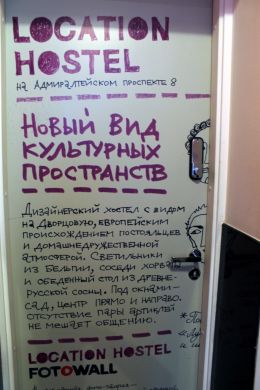 LOCATION
HOSTEL
на Адмиралтейском проспекте 8
Новый вид
культурных
пространств
Дизайнерский хостел с видом
на Дворцовую, европейским
происхождением постояльцев
и домашнедружественной
атмосферой. Светильники
из Бельгии, соседи хорваты
и обеденный стол из древне-
русской сосны. Под окнами-
сад, центр прямо и направо.
отсутствие пары артиклей
не мешает общению.
LOCATION HOSTEL
FOTOWALL